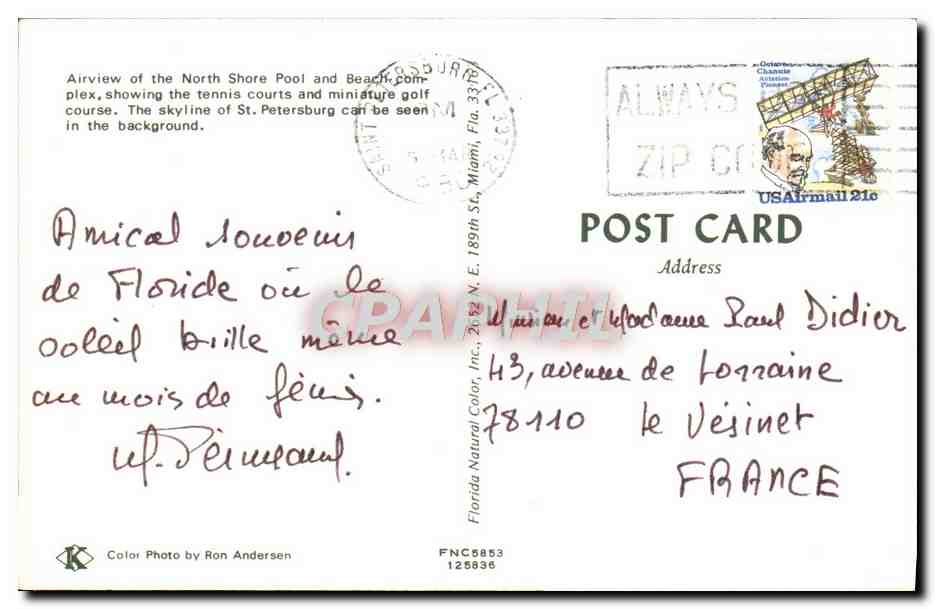 Airview of the North Shore Pool and Beach com-
plex, showing the tennis courts and miniature golf
course. The skyline of St. Petersburg can be seen
in the background.
Amical souvenir
de Floride où le
soleil brille même
au mois de
SAINT PETERSBURG, FL 337
PM
ALWAYS
ZIP CODE
Octave
Chanute
Aviation
Pioneer
USAirmail 21c
POST CARD
Address
Monsieur et Madame Paul Didier
43, avenue de Lorraine
78110 Le Vésinet
FRANCE
Florida Natural Color, Inc., 2652 N. E. 189th St., Miami, Fla. 331
CPAPHIL
K
Color Photo by Ron Andersen
FNC5853
125836